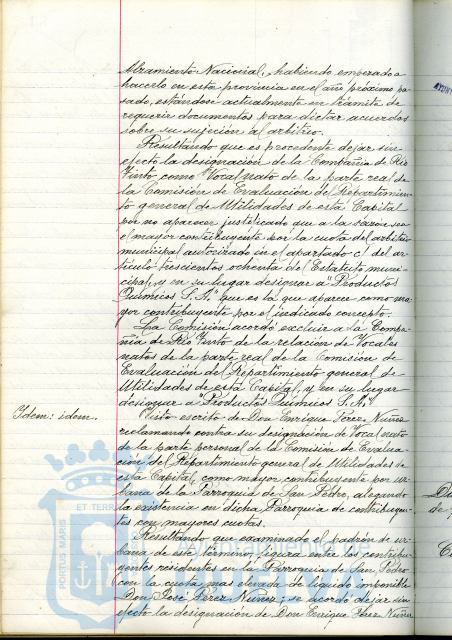 Alzamiento Nacional, habiendo empezado a
hacerlo en esta provincia en el año próximo pa-
sado, estándose actualmente en trámite de
requerir documentos para dictar acuerdos
sobre su sujeción al arbitrio.
Resultando que es procedente dejar sin
efecto la designación de la Compañía de Rio
Tinto como Vocal nato de la parte real de
la Comisión de Evaluación del Repartimien-
to general de Utilidades de esta Capital
por no aparecer justificado que a la sazón sea
el mayor contribuyente por la cuota del arbitrio
municipal autorizado en el apartado c) del ar-
tículo trescientos ochenta del Estatuto muni-
cipal, y en su lugar designar a "Productos
Químicos S.A." que es la que aparece como ma-
yor contribuyente por el indicado concepto.
La Comisión acordó excluir a la Compa-
ñía de Rio Tinto de la relación de Vocales
natos de la parte real de la Comisión de
Evaluación del Repartimiento general de
Utilidades de esta Capital, y en su lugar
designar a "Productos Químicos S.A."
Idem: idem.
Visto escrito de Don Enrique Pérez Núñez
reclamando contra su designación de Vocal nato
de la parte personal de la Comisión de Evalua-
ción del Repartimiento general de Utilidades de
esta Capital, como mayor contribuyente por ur-
bana de la Parroquia de San Pedro, alegando
la existencia en dicha Parroquia de contribuyen-
tes con mayores cuotas.
Resultando que examinado el padrón de ur-
bana de este término, figura entre los contribu-
yentes residentes en la Parroquia de San Pedro
con la cuota mas elevada de líquido imponible
Don José Pérez Núñez; se acordó dejar sin
efecto la designación de Don Enrique Pérez Núñez
PORTUS MARIS
ET TERRÆ